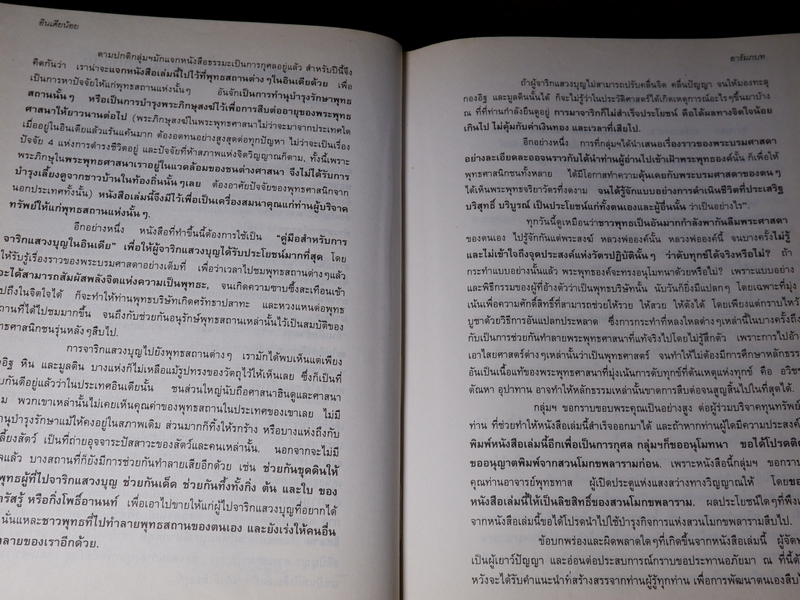 อินเดียน้อย
ตามปกติกลุ่มฯมักแจกหนังสือธรรมะเป็นการกุศลอยู่แล้ว สำหรับปีนี้จึง
คิดกันว่า เราน่าจะแจกหนังสือเล่มนี้ไปไว้ที่พุทธสถานต่างๆในอินเดียด้วย เพื่อ
เป็นการหาปัจจัยให้แก่พุทธสถานแห่งนั้นๆ อันจักเป็นการทำนุบำรุงรักษาพุทธ
สถานนั้นๆ หรือเป็นการบำรุงพระภิกษุสงฆ์ไว้เพื่อการสืบต่ออายุของพระพุทธ
ศาสนาให้ยาวนานต่อไป (พระภิกษุสงฆ์ในพระพุทธศาสนาไม่ว่าจะมาจากประเทศใด
เมื่ออยู่ในอินเดียแล้วแร้นแค้นมาก ต้องอดทนอย่างสูงสุดต่อทุกปัญหา ไม่ว่าจะเป็นเรื่อง
ปัจจัย 4 แห่งการดำรงชีวิตอยู่ และปัจจัยที่ห้าสภาพแห่งจิตวิญญาณก็ตาม, ทั้งนี้เพราะ
พระภิกษุในพระพุทธศาสนาเราอยู่ในแวดล้อมของชนต่างศาสนา จึงไม่ได้รับการ
บำรุงเลี้ยงดูจากชาวบ้านในท้องถิ่นนั้นๆเลย ต้องอาศัยปัจจัยของพุทธศาสนิกจาก
นอกประเทศทั้งนั้น) หนังสือเล่มนี้จึงมีไว้เพื่อเป็นเครื่องสมนาคุณแก่ท่านผู้บริจาค
ทรัพย์ให้แก่พุทธสถานแห่งนั้นๆ.
อีกอย่างหนึ่ง หนังสือที่ทำขึ้นนี้ต้องการใช้เป็น "คู่มือสำหรับการ
จาริกแสวงบุญในอินเดีย" เพื่อให้ผู้จาริกแสวงบุญได้รับประโยชน์มากที่สุด โดย
ให้รับรู้เรื่องราวของพระบรมศาสดาอย่างเต็มที่ เพื่อว่าเวลาไปชมพุทธสถานต่างๆแล้ว
จะได้สามารถสัมผัสพลังจิตแห่งความเป็นพุทธะ, จนเกิดความซาบซึ้งสะเทือนเข้า
ไปถึงในจิตใจได้ ก็จะทำให้ท่านพุทธบริษัทเกิดศรัทธาปสาทะ และหวงแหนต่อพุทธ
สถานที่ได้ไปชมมากขึ้น จนถึงกับช่วยกันอนุรักษ์พุทธสถานเหล่านั้นไว้เป็นสมบัติของ
ศาสนิกชนรุ่นหลังๆสืบไป.
การจาริกแสวงบุญไปยังพุทธสถานต่างๆ เรามักได้พบเห็นแต่เพียง
อิฐ หิน และมูลดิน บางแห่งก็ไม่เหลือแม้รูปทรงของวัตถุไว้ให้เห็นเลย ซึ่งก็เป็นที่
กันดีอยู่แล้วว่าในประเทศอินเดียนั้น ชนส่วนใหญ่นับถือศาสนาฮินดูและศาสนา
พวกเขาเหล่านั้นไม่เคยเห็นคุณค่าของพุทธสถานในประเทศของเขาเลย ไม่มี
นุบำรุงรักษาแม้ให้คงอยู่ในสภาพเดิม ส่วนมากก็ทิ้งให้รกร้าง หรือบางแห่งถึงกับ
เลี้ยงสัตว์ เป็นที่ถ่ายอุจจาระปัสสาวะของสัตว์และคนเหล่านั้น. นอกจากจะไม่มี
แล้ว บางสถานที่ก็ยังมีการช่วยกันทำลายเสียอีกด้วย เช่น ช่วยกันขุดดินให้
พุทธผู้ที่ไปจาริกแสวงบุญ ช่วยกันเด็ด ช่วยกันทึ้งทั้งกิ่ง ต้น และใบ ของ
ตรัสรู้ หรือกิ่งโพธิ์อานนท์ เพื่อเอาไปขายให้แก่ผู้ไปจาริกแสวงบุญที่อยากได้
นั่นแหละชาวพุทธที่ไปทำลายพุทธสถานของตนเอง และยังเร่งให้คนอื่น
ลายของเราอีกด้วย.
อารัมภบท
ถ้าผู้จาริกแสวงบุญไม่สามารถปรับคลื่นจิต คลื่นปัญญา จนให้มองทะลุ
กองอิฐ และมูลดินนั้นได้ ก็จะไม่รู้ว่าในประวัติศาสตร์ได้เกิดเหตุการณ์อะไรๆขึ้นมาบ้าง
ณ ที่ที่ท่านกำลังยืนดูอยู่ การมาจาริกก็ไม่สำเร็จประโยชน์ คือได้ผลทางจิตใจน้อย
เกินไป ไม่คุ้มกับค่าเงินทอง และเวลาที่เสียไป.
อีกอย่างหนึ่ง การที่กลุ่มฯได้นำเสนอเรื่องราวของพระบรมศาสดา
อย่างละเอียดละออจนราวกับได้นำท่านผู้อ่านไปเข้าเฝ้าพระพุทธองค์นั้น ก็เพื่อให้
พุทธศาสนิกชนทั้งหลาย ได้มีโอกาสทำความคุ้นเคยกับพระบรมศาสดาของตนๆ
ได้เห็นพระพุทธจริยาวัตรที่งดงาม จนได้รู้จักแบบอย่างการดำเนินชีวิตที่ประเสริฐ
บริสุทธิ์ บริบูรณ์ เป็นประโยชน์แก่ทั้งตนเองและผู้อื่นนั้น ว่าเป็นอย่างไร".
ทุกวันนี้ดูเหมือนว่าชาวพุทธเป็นอันมากกำลังพากันลืมพระศาสดา
ของตนเอง ไปรู้จักกันแต่พระสงฆ์ หลวงพ่อองค์นั้น หลวงพ่อองค์นี้ จนบางครั้งไม่รู้
และไม่เข้าใจถึงจุดประสงค์แห่งวัตรปฏิบัตินั้นๆ ว่าดับทุกข์ได้จริงหรือไม่? ถ้า
กระทำแบบอย่างนั้นแล้ว พระพุทธองค์จะทรงอนุโมทนาด้วยหรือไม่? เพราะแบบอย่าง
และพิธีกรรมของผู้ที่อ้างตัวว่าเป็นพุทธบริษัทนั้น นับวันก็ยิ่งมีแปลกๆ โดยเฉพาะที่มุ่ง
เน้นเพื่อความศักดิ์สิทธิ์ที่สามารถช่วยให้รวย ให้สวย ให้ดังได้ โดยเพียงแต่กราบไหว้
บูชาด้วยวิธีการอันแปลกประหลาด ซึ่งการกระทำที่หลงใหลต่างๆเหล่านี้ในบางครั้งถึง
กับเป็นการช่วยกันทำลายพระพุทธศาสนาที่แท้จริงไปโดยไม่รู้สึกตัว เพราะการไปอ้าง
เอาไสยศาสตร์ต่างๆเหล่านั้นว่าเป็นพุทธศาสตร์ จนทำให้ไม่ต้องมีการศึกษาหลักธรรม
อันเป็นเนื้อแท้ของพระพุทธศาสนาที่มุ่งเน้นการดับทุกข์ที่ต้นเหตุแห่งทุกข์ คือ อวิชชา
ตัณหา อุปาทาน อาจทำให้หลักธรรมเหล่านั้นขาดการสืบต่อจนสูญสิ้นไปในที่สุดได้.
กลุ่มฯ ขอกราบขอบพระคุณเป็นอย่างสูง ต่อผู้ร่วมบริจาคทุนทรัพย์
ท่าน ที่ช่วยทำให้หนังสือเล่มนี้สำเร็จออกมาได้ และถ้าหากท่านผู้ใดมีความประสงค์
พิมพ์หนังสือเล่มนี้อีกเพื่อเป็นการกุศล กลุ่มฯก็ขออนุโมทนา ขอได้โปรดติด
ขออนุญาตพิมพ์จากสวนโมกขพลารามก่อน. เพราะหนังสือนี้กลุ่มฯ ขอกราบ
คุณท่านอาจารย์พุทธทาส ผู้เปิดประตูแห่งแสงสว่างทางวิญญาณให้ โดยขอ
หนังสือเล่มนี้ให้เป็นลิขสิทธิ์ของสวนโมกขพลาราม. ผลประโยชน์ใดๆที่พึง
จากหนังสือเล่มนี้ขอได้โปรดนำไปใช้บำรุงกิจการแห่งสวนโมกขพลารามสืบไป.
ข้อบกพร่องและผิดพลาดใดๆที่เกิดขึ้นจากหนังสือเล่มนี้ ผู้จัด
เป็นผู้เยาว์ปัญญา และอ่อนต่อประสบการณ์กราบขอประทานอภัยมา ณ ที่นี้ด้วย
หวังจะได้รับคำแนะนำที่สร้างสรรจากท่านผู้รู้ทุกท่าน เพื่อการพัฒนาตนเองสืบไป